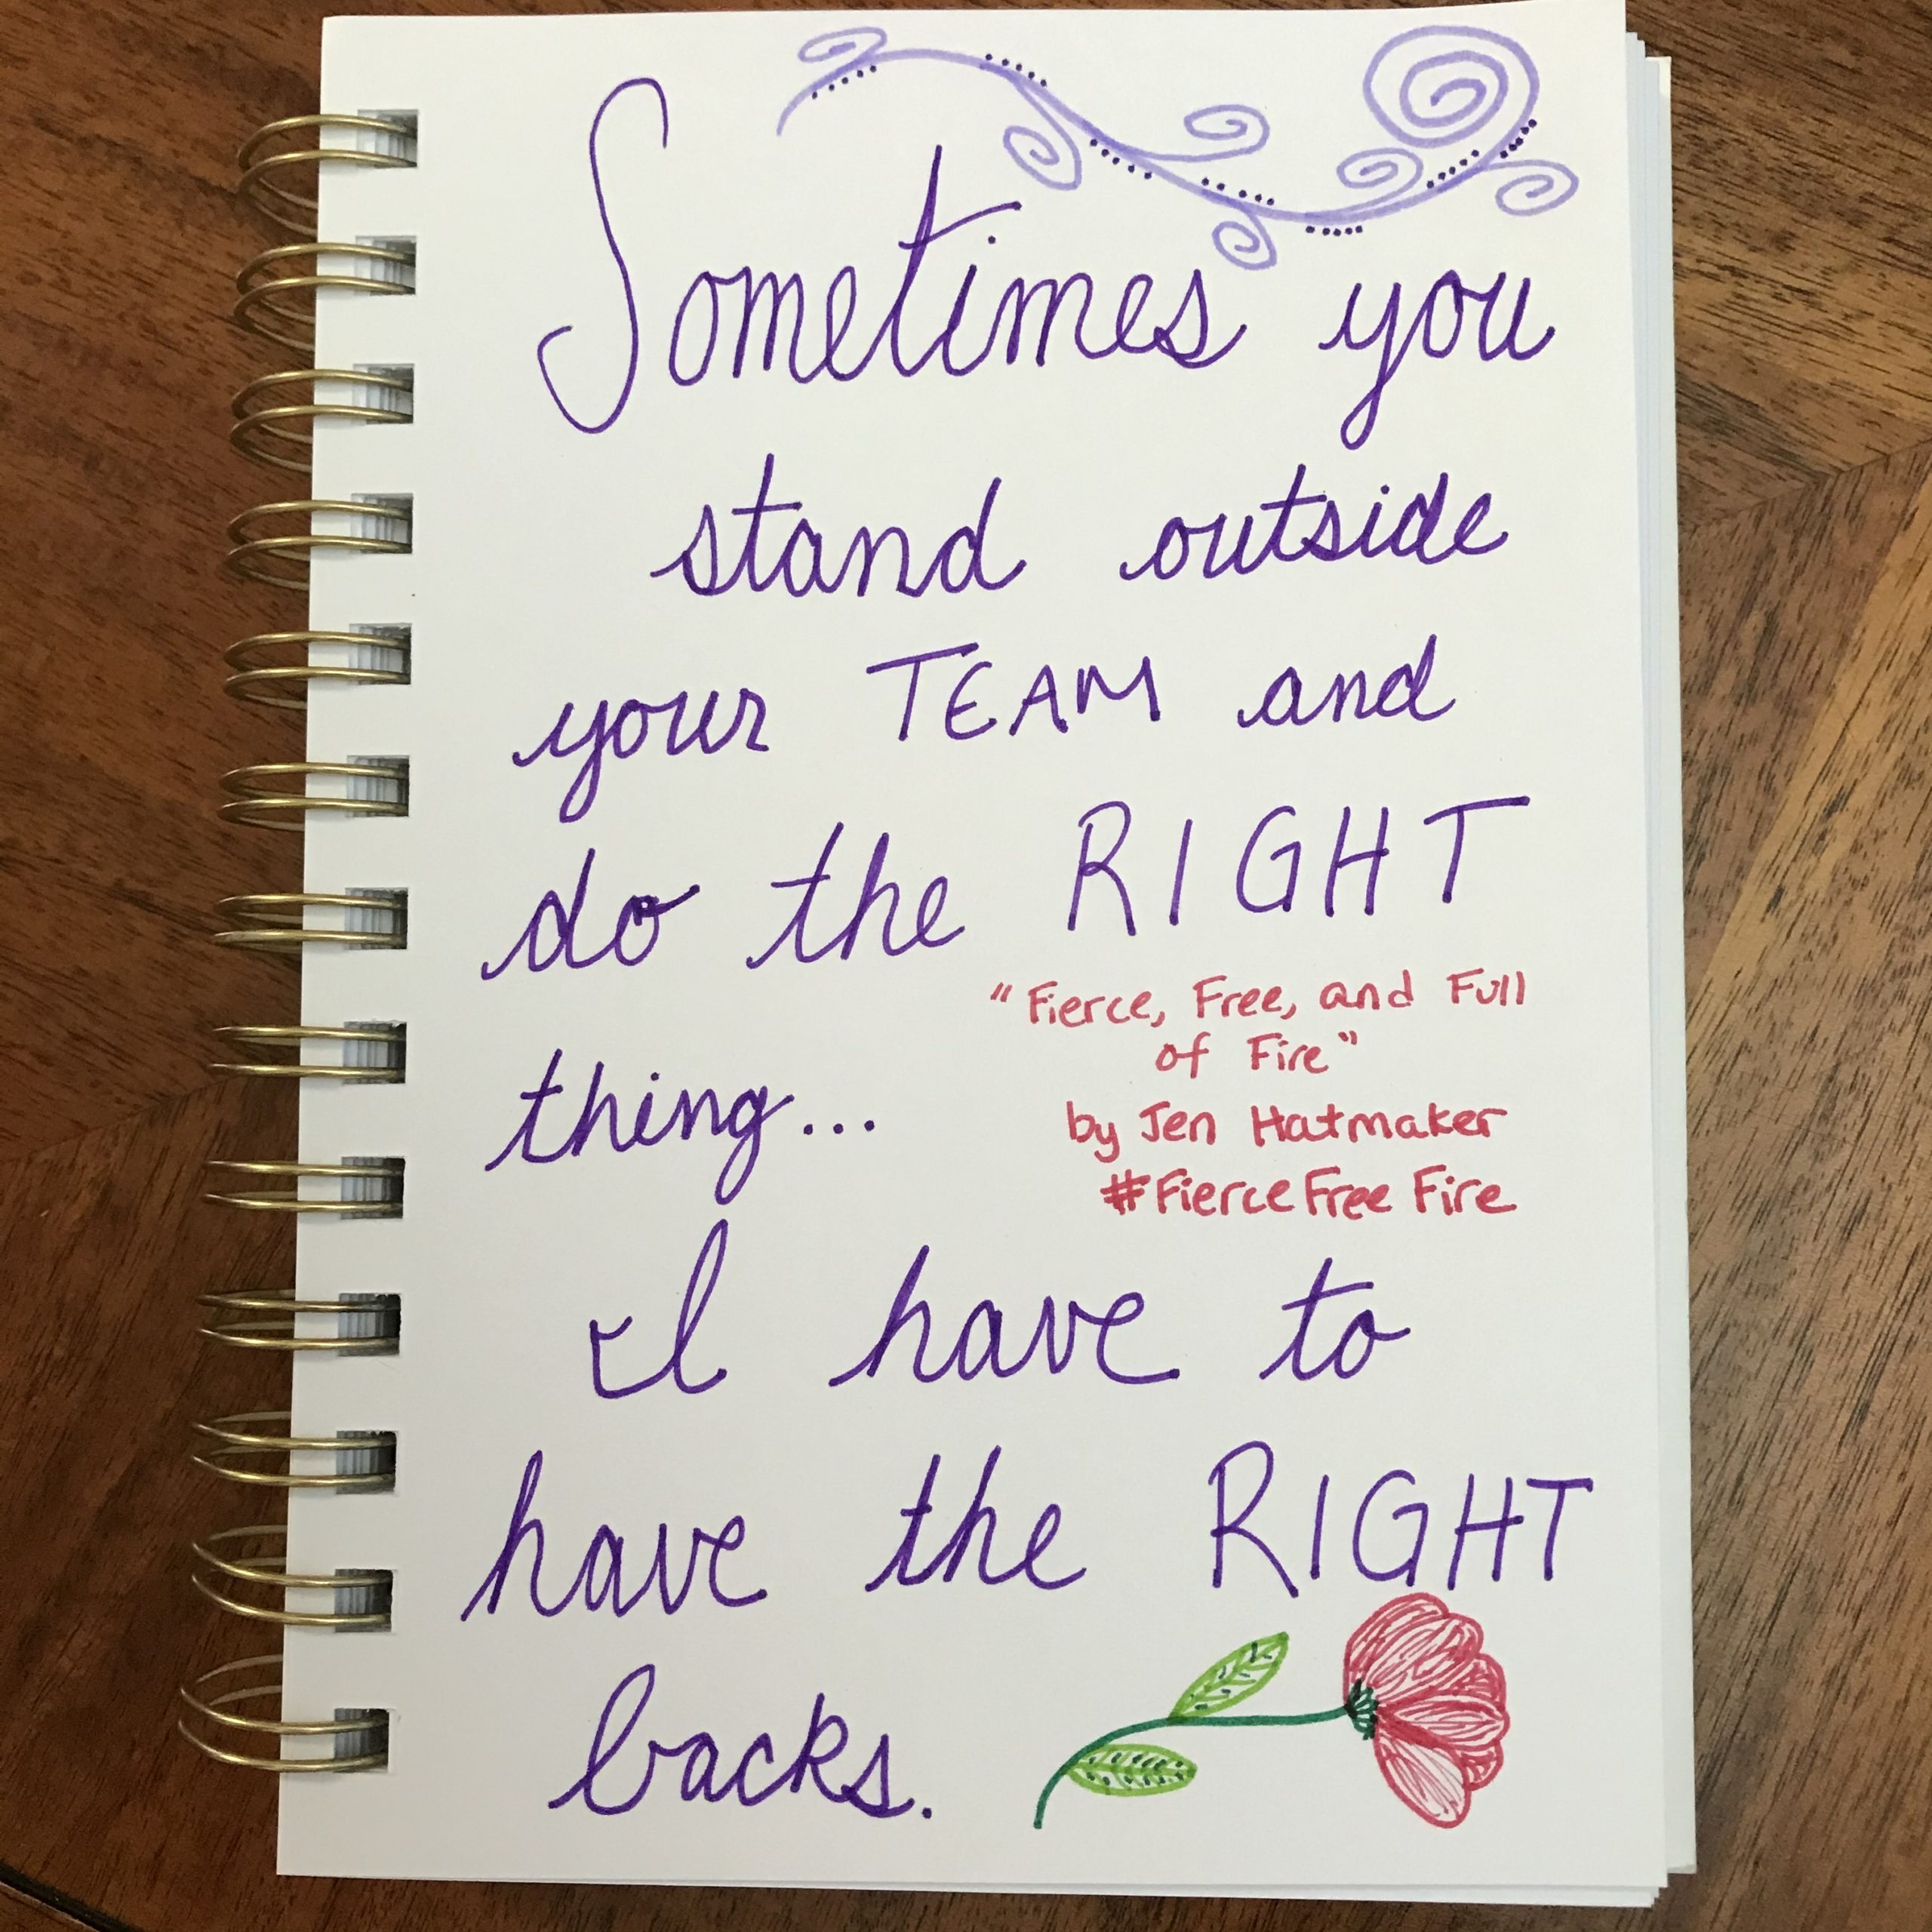 Sometimes you
stand outside
your TEAM and
do the RIGHT
thing...
"Fierce, Free, and Full
of Fire"
by Jen Hatmaker
#FierceFreeFire
I have to
have the RIGHT
backs.